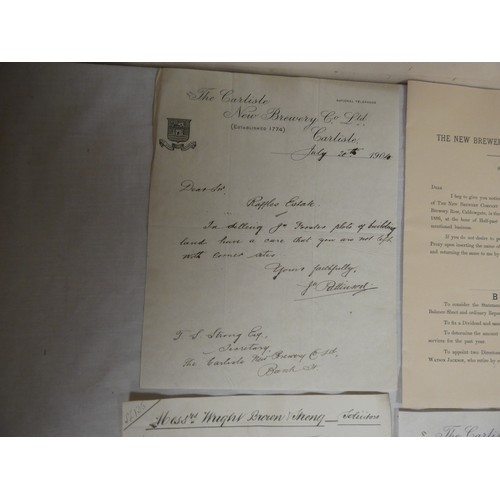 The Carlisle
New Brewery Co Ltd
(ESTABLISHED 1774)
NATIONAL TELEPHONE
Carlisle.
July 20th 1904
Dear Sir
Raffles Estate
In selling Jno plots of building
land have a care that you are not left
with corner sites
Yours faithfully,
Jno Pattinson
T. S. Strong Esq.
Secretary
The Carlisle New Brewery Co Ltd.
Messrs Wright Brown & Strong Solicitors
THE NEW BREWER
DEAR
I beg to give you notice
of THE NEW BREWERY COMPANY
Brewery Row, Caldewgate, in the
at the hour of Half-past
mentioned business.
If you do not intend to
Proxy upon inserting the name of
and returning the same to me by
B
To consider the Statement
Balance Sheet and ordinary
To fix a Dividend and
To determine the amount
sections for the past year.
To appoint two Directors
who retire by
The Carlisle